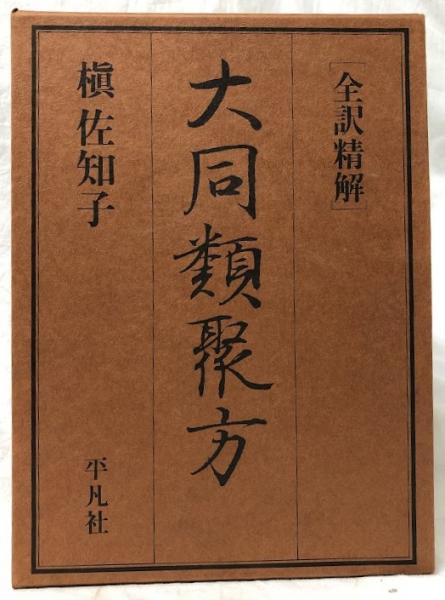 ［全訳精解］
大同類聚方
槇佐知子
平凡社